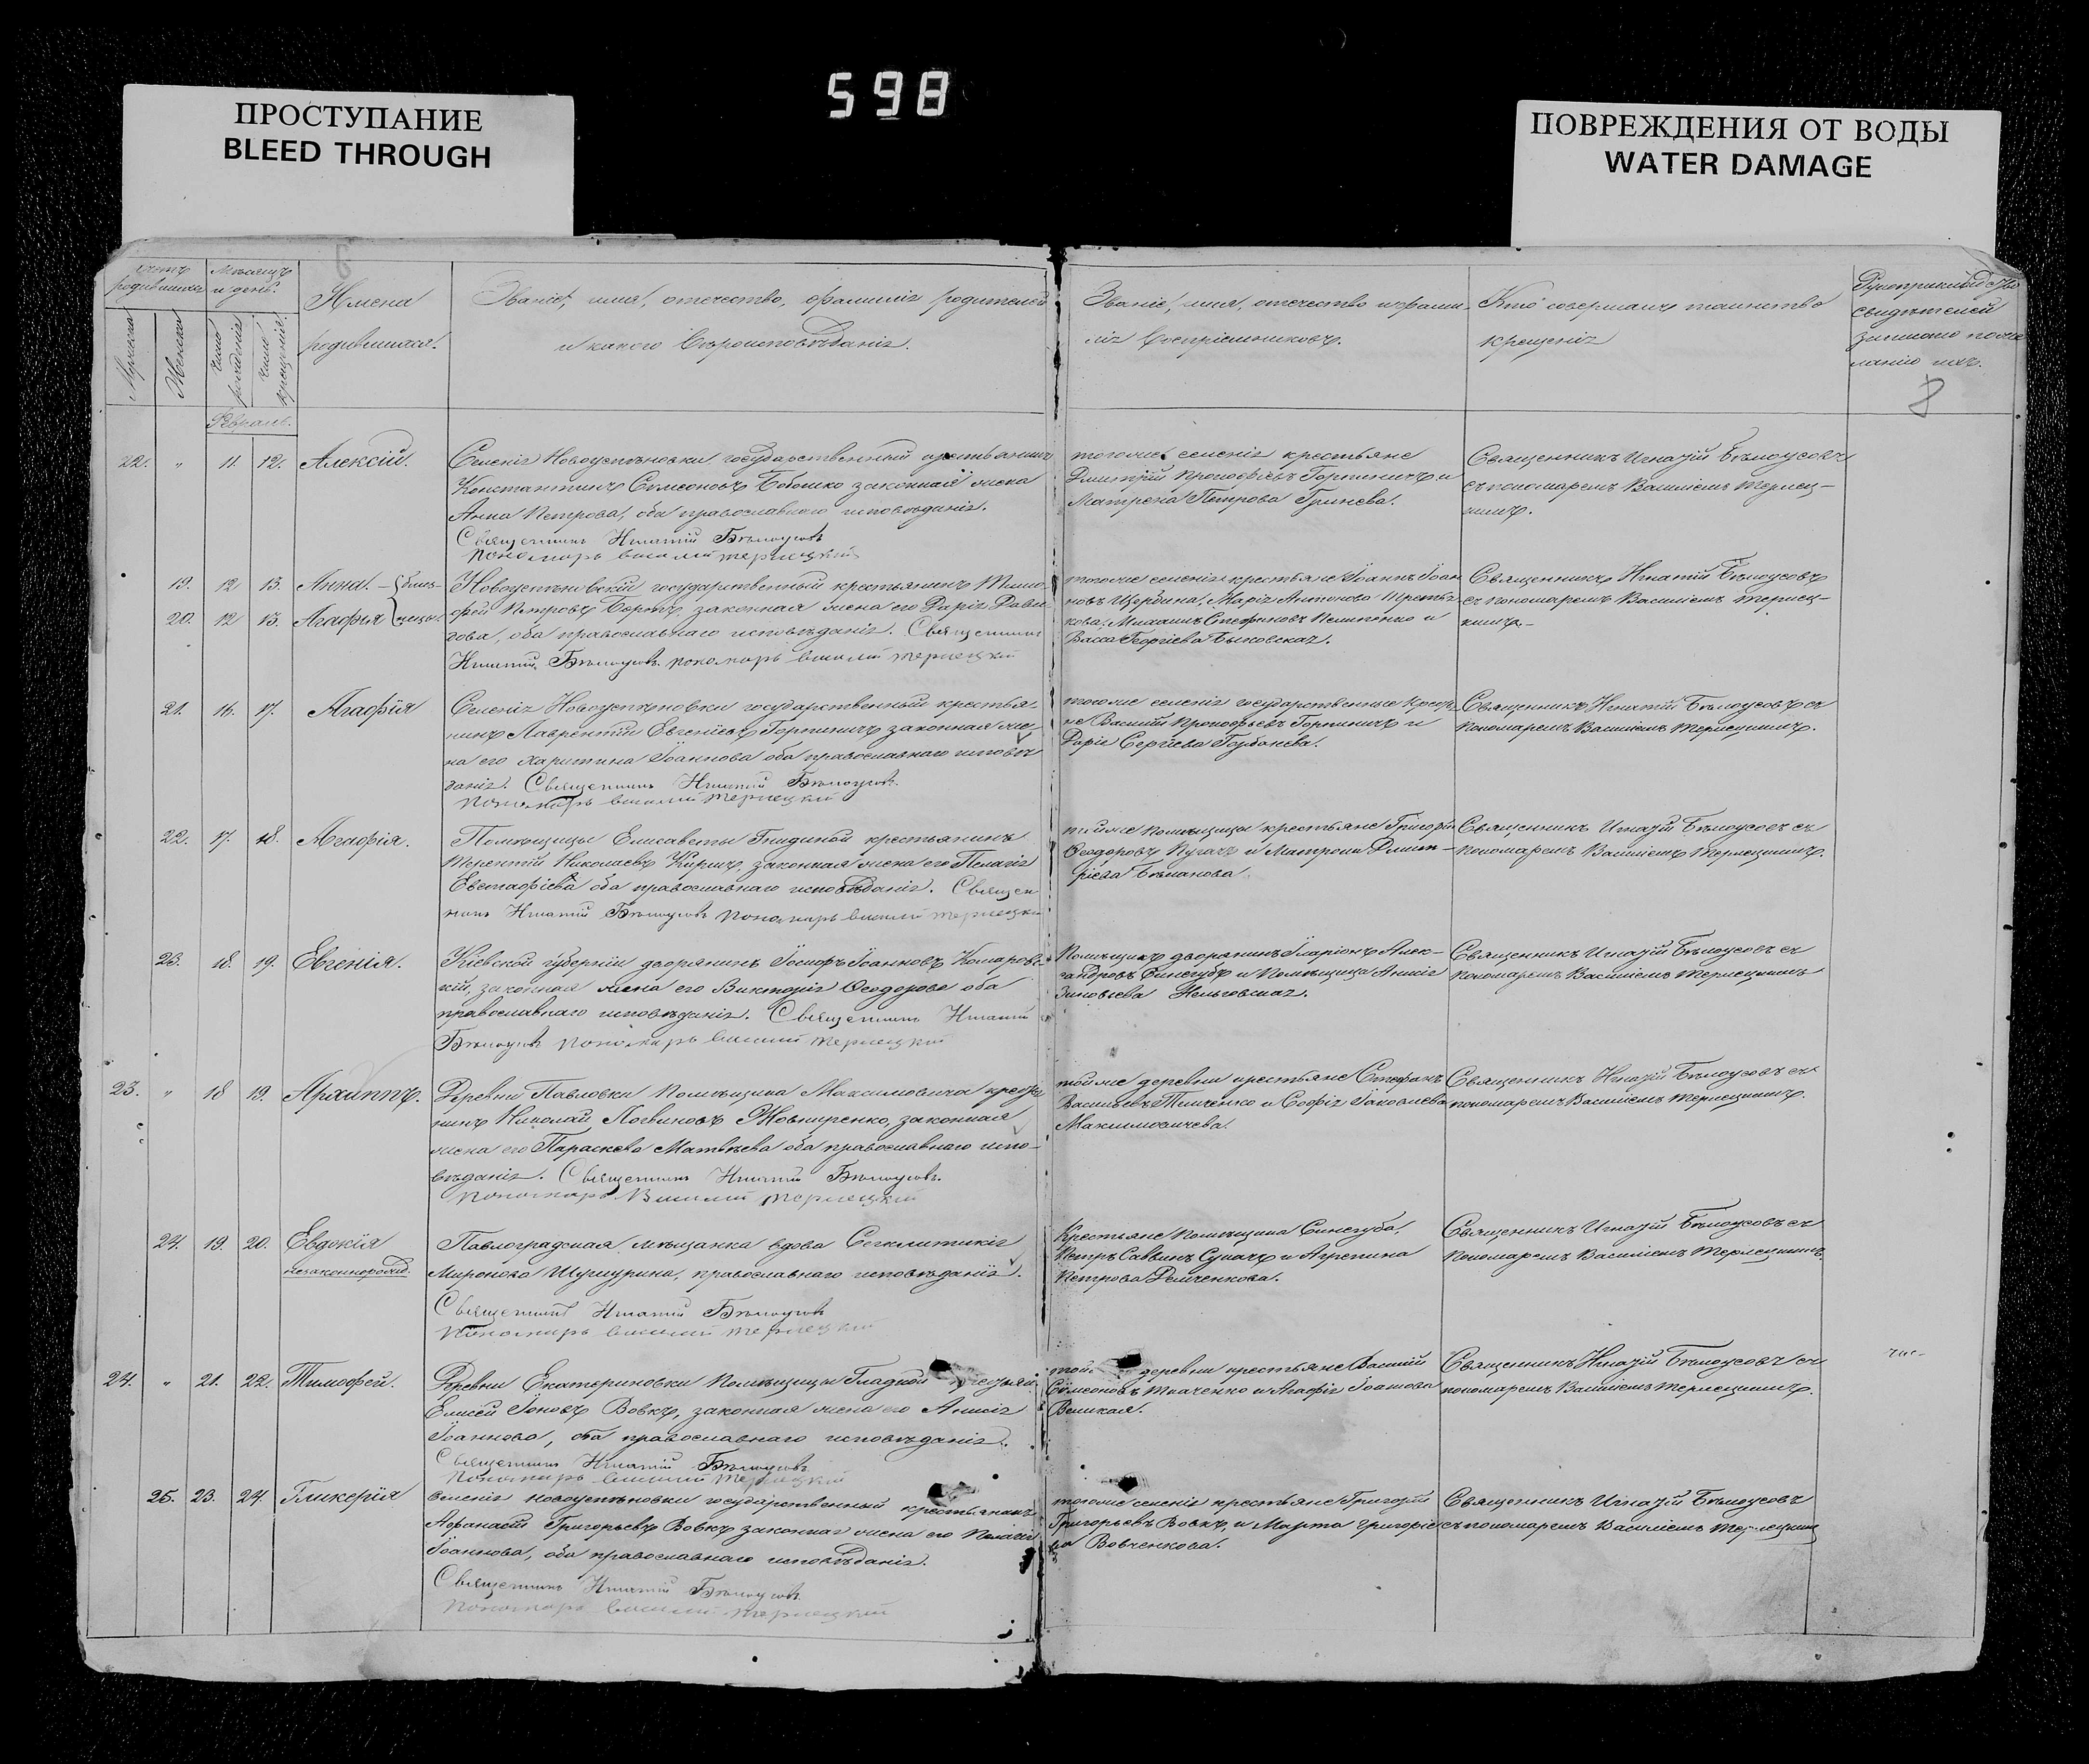 598
ПРОСТУПАНИЕ
BLEED THROUGH
ПОВРЕЖДЕНИЯ ОТ ВОДЫ
WATER DAMAGE
счетъ родившихся
Мѣсяцъ и день.
Мужеска
Женска
число рожденія
число крещенія
Имена
родившихся.
Званіе, имя, отечество, фамилія родителей
и какого вѣроисповѣданія.
Званіе, имя, отечество и фами-
лія воспріемниковъ.
Кто совершалъ таинство
крещенія
Рукоприкладство
свидѣтелей
записано по же
ланію ихъ.
8
Февраль.
22. " 11. 12. Алексій.
Селенія Новоуспѣновки государственный крестьянинъ
Константинъ Симеоновъ Бобошко законная жена
Анна Петрова, оба православнаго исповѣданія.
Священникъ Игнатій Бѣлоусовъ
Пономарь Василий Терлецкий
того же селенія крестьяне
Дмитрій Прокофіевъ Горпиничъ и
Матрена Петрова Гринева.
Священникъ Игнатій Бѣлоусовъ
съ пономаремъ Василіемъ Терлец-
кимъ.
19. 12 13. Анна. – близ-
20. 12 13. Агафья нецы.
Новоуспѣновскій государственный крестьянинъ Тимо
фей Петровъ Боровъ, законная жена его Дарія
оба православнаго исповѣданія. Священникъ
Игнатий Бѣлоусовъ пономарь Василий Терлецкий
того же селенія крестьяне Іоаннъ Іоан
новъ Щербина, Марія Антонова
Михаилъ Стефановъ Пелипенко и
Васса Георгіева Быковская.
Священникъ Игнатій Бѣлоусовъ
съ пономаремъ Василіемъ Терлец-
кимъ.–
21. 16. 17. Агафія
Селенія Новоуспѣновки государственный крестья-
нинъ Лаврентій Евгеніевъ Горпиничъ законная же
на его Харитина Іоаннова оба православнаго исповѣ
данія. Священникъ Игнатий Бѣлоусовъ.
Пономарь Василий Терлецкий
того же селенія государственные крестья
не Василій Прокофьевъ Горпиничъ и
Дарія Сергіева Горбанева.
Священникъ Игнатій Бѣлоусовъ съ
пономаремъ Василіемъ Терлецкимъ.
22. 17. 18. Агафія.
Помѣщицы Елисаветы Гнидиной крестьянинъ
Терентій Николаевъ Киричъ, законная жена его Пелагія
Евстафіева оба православнаго исповѣданія. Священ
никъ Игнатий Бѣлоусовъ Пономарь Василий Терлецкий
той же помѣщицы крестьяне Григорій
Ѳеодоровъ Пугачъ и Матрона Дмит-
ріева Бѣланова.
Священникъ Игнатій Бѣлоусовъ съ
пономаремъ Василіемъ Терлецкимъ.
23. 18. 19. Евгенія.
Кіевской губерніи дворянинъ Іосифъ Іоанновъ Комаров
кій, законная жена его Викторія Ѳеодорова оба
православнаго исповѣданія. Священникъ Игнатий
Бѣлоусовъ Пономарь Василий Терлецкий
Помѣщикъ дворянинъ Иларіонъ Алек-
сандровъ Синегубъ и Помѣщица Анисія
Зиновьева
Священникъ Игнатій Бѣлоусовъ съ
пономаремъ Василіемъ Терлецкимъ
23. " 18 19. Архиппъ.
Деревни Павловки Помѣщика Максимовича крестья
нинъ Николай Логвиновъ Жовниренко, законная
жена его Параскева Матвѣева оба православнаго испо-
вѣданія. Священникъ Игнатий Бѣлоусовъ.
Пономарь Василий Терлецкий
той же деревни крестьяне Стефанъ
Васильевъ Тимченко и Софія Іаковлева
Максимовичева.
Священникъ Игнатій Бѣлоусовъ съ
пономаремъ Василіемъ Терлецкимъ.
24. 19. 20. Евдокія
незаконнорожд.
Павлоградская мѣщанка вдова Сегклитикія
Миронова Шушурина, православнаго исповѣданія.
Священникъ Игнатий Бѣлоусовъ
Пономарь Василий Терлецкий
Крестьяне Помѣщика Синегуба,
Петръ Саввинъ Сукачъ и Агрепина
Петрова Демченкова.
Священникъ Игнатій Бѣлоусовъ съ
пономаремъ Василіемъ Терлецкимъ
24. " 21. 22. Тимофей.
Деревни Екатериновки Помѣщицы Гладкой
Елисей Іоновъ Вовкъ, законная жена его Анисія
Іоаннова, оба православнаго исповѣданія.
Священникъ Игнатий Бѣлоусовъ
Пономарь Василий Терлецкий
той деревни крестьяне Василій
Симеоновъ Ткаченко и Агафія Іоаннова
Великая.
Священникъ Игнатій Бѣлоусовъ съ
пономаремъ Василіемъ Терлецкимъ.
25. 23. 24. Гликерія
Селенія Новоуспѣновки государственный крестьянинъ
Афанасій Григорьевъ Вовкъ законная жена его Пелагія
Іоаннова, оба православнаго исповѣданія.
Священникъ Игнатий Бѣлоусовъ
Пономарь Василий Терлецкий
того же селенія крестьяне Григорій
Григорьевъ Вовкъ, и Марта Григоріе
ва Вовченкова.
Священникъ Игнатій Бѣлоусовъ
съ пономаремъ Василіемъ Терлецким